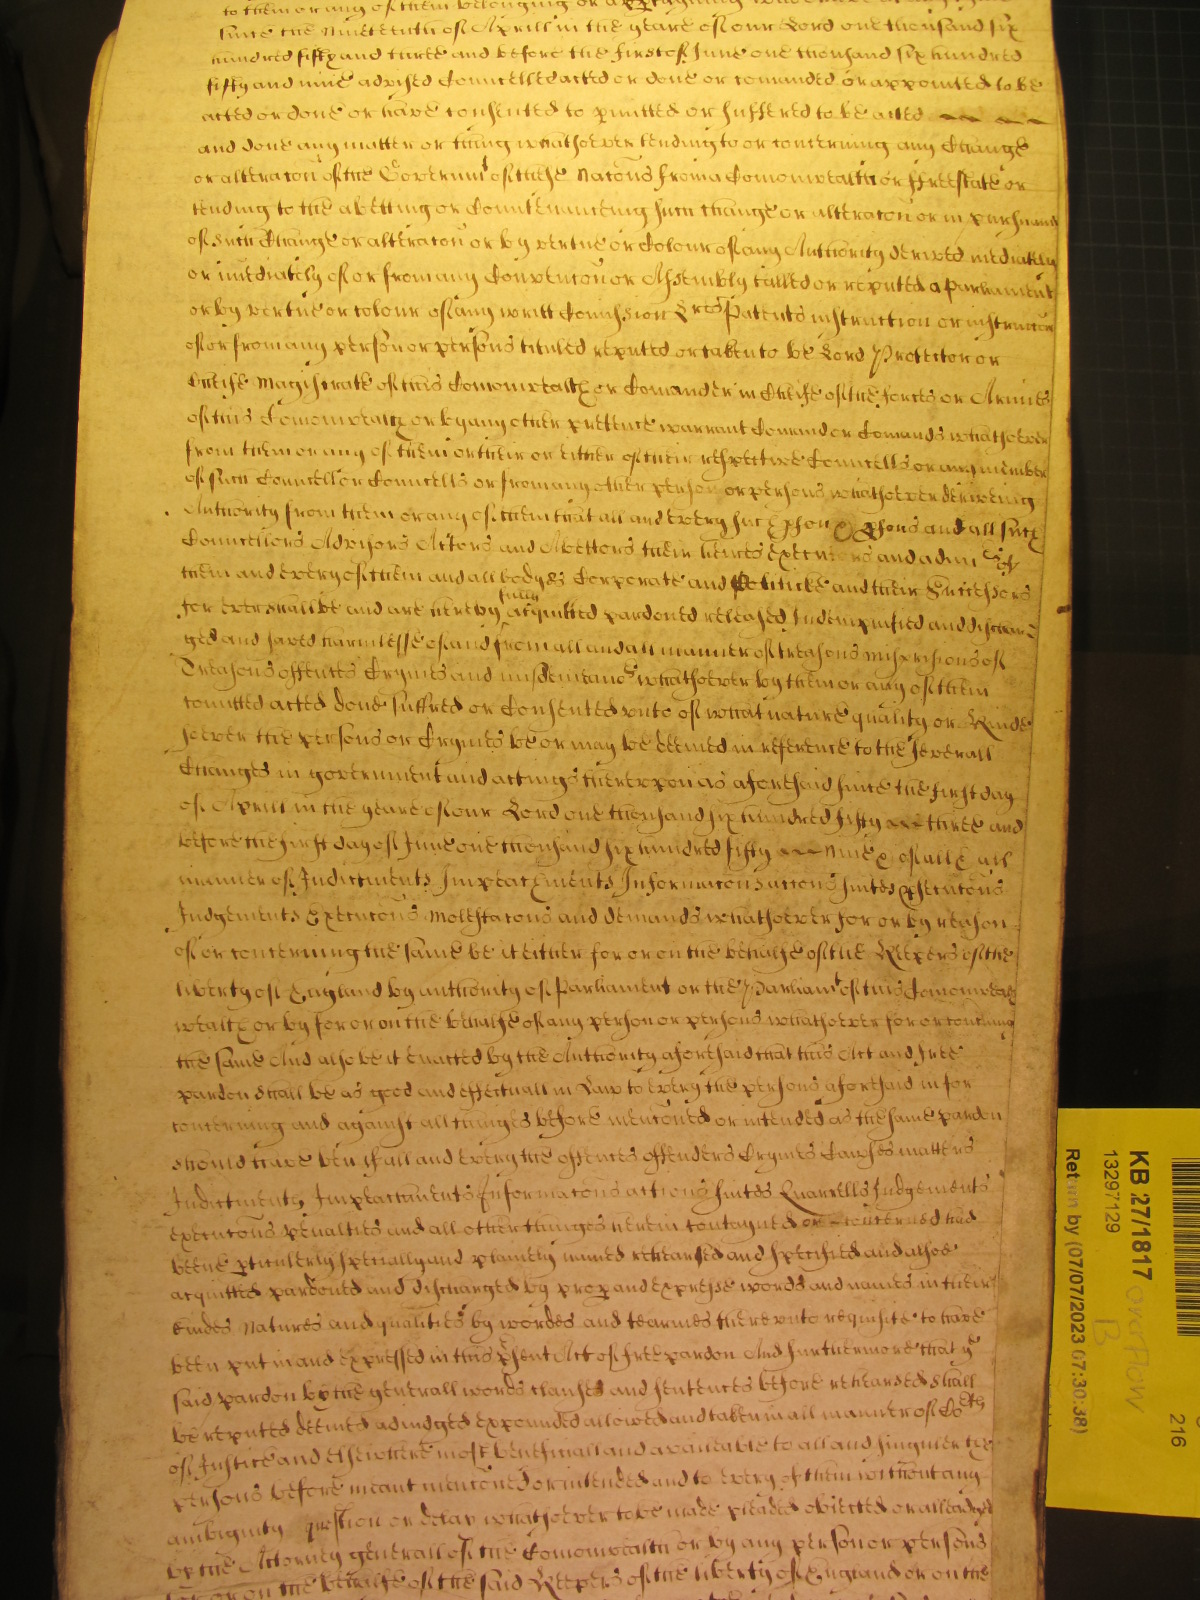 to them or any of them belonging or appertayning
since the Nineteenth of Aprill in the yeare of our Lord one thousand six
hundred fifty and three and before the first of June one thousand six hundred
fifty and nine advised Councelled acted or done or comanded or appointed to be
acted or done or have consented to pmitted or suffered to be acted
and done any matter or thing whatsoever tending to or concerning any Change
or alteracon of the Governmt of these Nacons from a Comonwealth or ffree state or
tending to the abetting or Countenanceing such change or alteracon or in pursuance
of such Change or alteracon or by vertue or Colour of any Authority derived mediately
or imediately of or from any Convencon or Assembly called or reputed a Parliament
or by vertue or colour of any writt Comission Lres Patents instruccon or instruccons
of or from any person or persons tituled reputed or taken to be Lord Protector or
Cheife Magistrate of this Comonwealth or Comander in Cheife of the forces or Armies
of this Comonwealth or by any other pretence warrant Comand or Comands whatsoever
from them or any of them or their or either of their respective Councells or any member
of such Councell or Councells or from any other person or persons whatsoever deriveing
Authority from them or any of them that all and every such pson & psons and all such
Councellors Advisors Actors and Abettors their heires executors and admi of
them and every of them and all bodyes Corporate and Politicke and their Successors
for ever shall be and are hereby fully acquitted pardoned released Indempnified and dischar
ged and saved harmelesse of and from all and all manner of treasons misprisions of
Treasons offences Crymes and misdemeanors whatsoever by them or any of them
comitted acted done suffred or Consented vnto of what nature quality or Kinde
soever the persons or Crymes be or may be deemed in reference to the severall
Changes in government and actings therevpon as aforesaid since the first day
of Aprill in the yeare of our Lord one thousand six hundred fifty three and
before the first day of June one thousand six hundred fifty nine & of all & all
manner of Indictments Impeachments Informacons accons suites psecucons
Judgements Execucons Molestacons and demands whatsoever for or by reason
of or concerning the same be it either for or on the behalfe of the Keepers of the
liberty of England by authority of Parliament or the Parliamt of this Comonwea
wealth or by for or on the behalfe of any person or persons whatsoever for or touching
the same And also be it enacted by the Authority aforesaid that this Act and free
pardon shall be as good and effectuall in Law to every the persons aforesaid in for
concerning and against all thinges before menconed or intended as the same pardon
should have ben if all and every the offences offenders Crymes Causes matters
Indictments Impeachments Informacons accons suites Quarrells Judgements
execucons penalties and all other thinges herein contayned or concerned had
beene pticulerly specially and plainely named rehearsed and specified and alsoe
acquitted pardoned and discharged by proper and expresse words and names in their
kindes Natures and qualities by wordes and tearmes therevnto requisite to have
been put in and expressed in this psent Act of free pardon And furthermore that ye
said pardon by the generall words clauses and sentences before rehearsed shall
be reputed deemed adiudged expounded allowed and taken in all manner of Corts
of Justice and elsewhere most beneficiall and avayleable to all and singuler the
persons before meant menconed or intended and to every of them without any
ambiguity question or delay whatsoever to be made pleaded obiected or alleadged
by the Attorney generall of the Comonwealth or by any person or persons
for or on the behalfe of the said Keepers of the liberty of England or on the
KB 27/1817 overflow
B
13297129
Return by (07/07/2023 07:30:38)
216